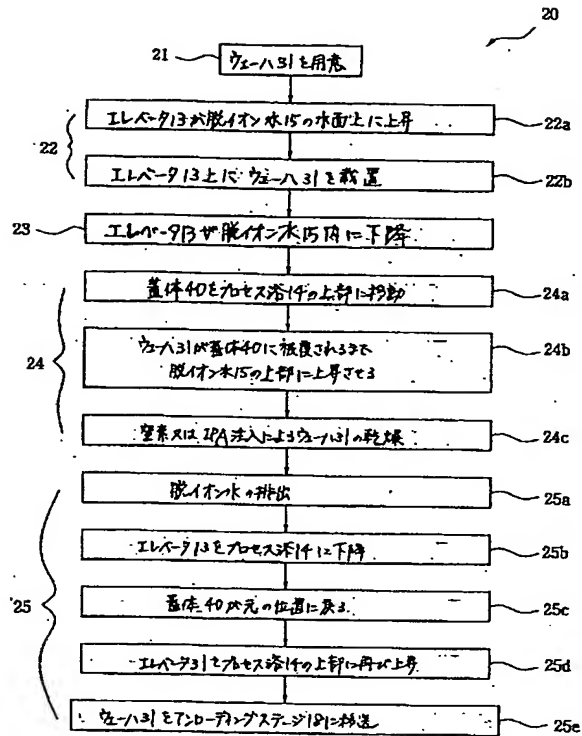 20
21 ウェーハ31を用意
エレベータ13が脱イオン水15の水面上に上昇 22a
22
エレベータ13上にウェーハ31を載置 22b
23 エレベータ13が脱イオン水15内に下降
蓋体40をプロセス浴14の上部に移動 24a
24
ウェーハ31が蓋体40に被覆されるまで
脱イオン水15の上部に上昇させる 24b
窒素又はIPA注入によるウェーハ31の乾燥 24c
脱イオン水の排出 25a
エレベータ13をプロセス浴14に下降 25b
25
蓋体40が元の位置に戻る 25c
エレベータ31をプロセス浴14の上部に再び上昇 25d
ウェーハ31をアンローディングステージ181に移送 25e